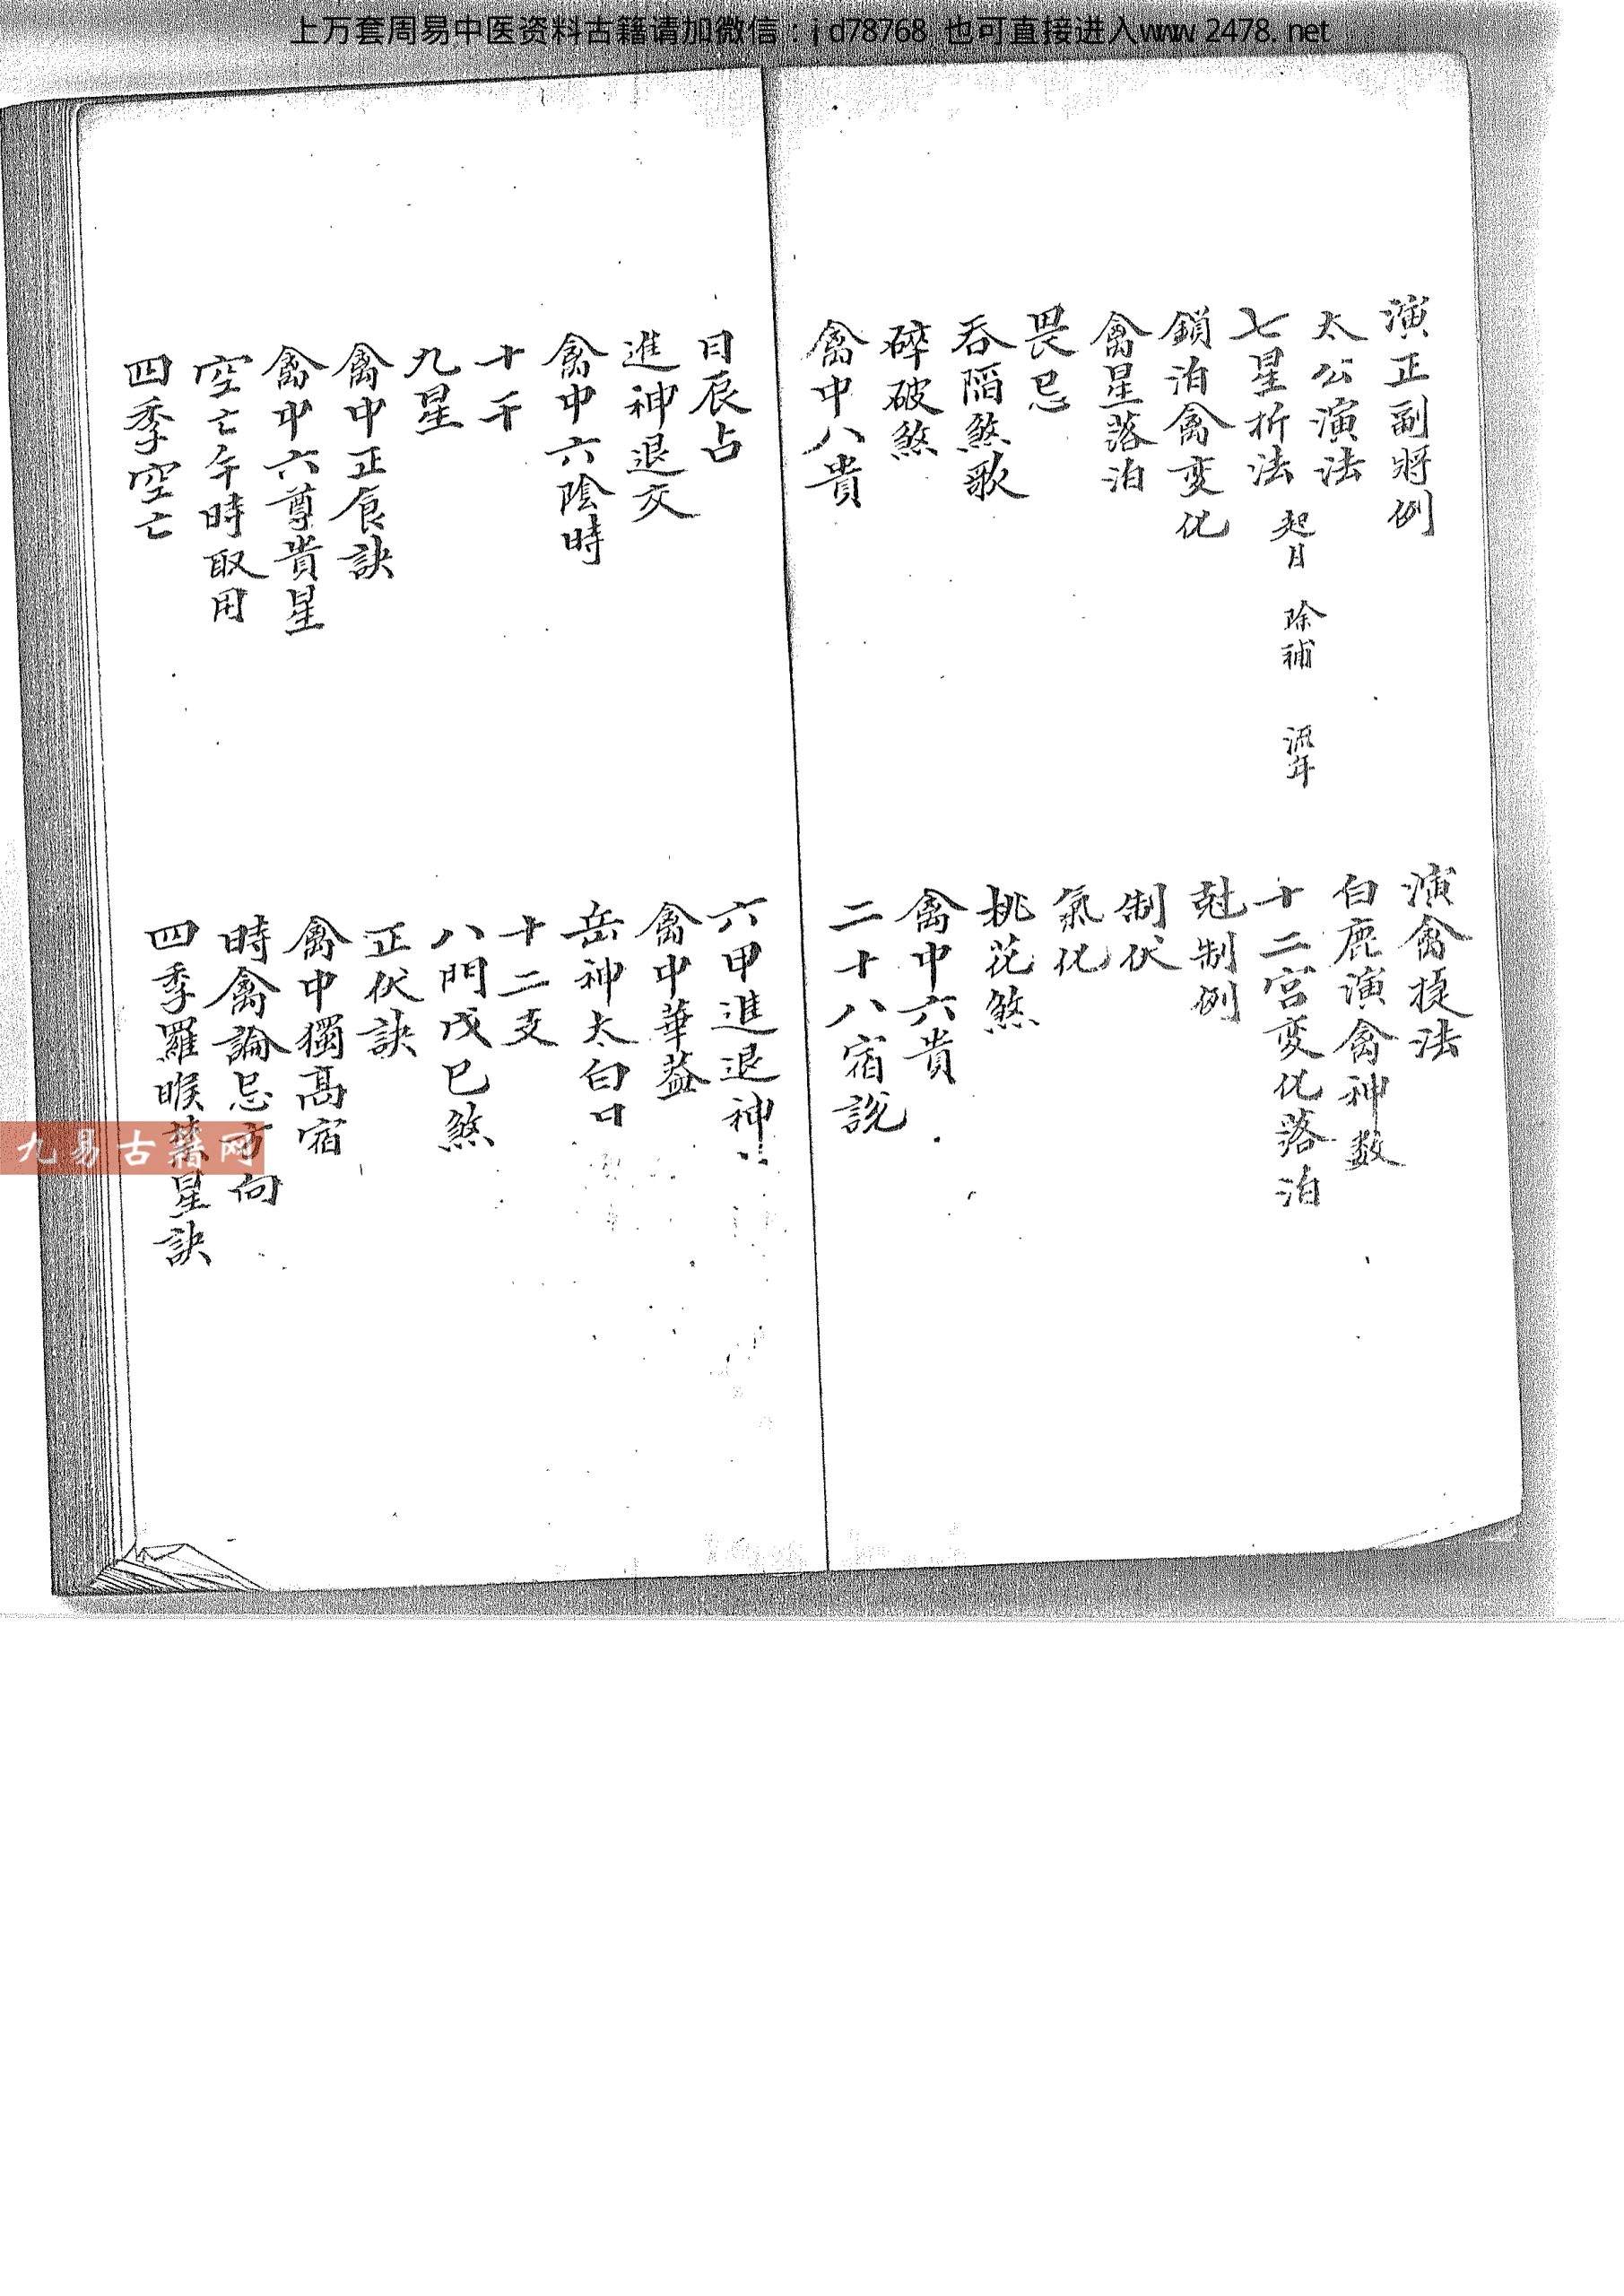 上万套周易中医资料古籍请加微信：jd78768 也可直接进入www.2478.net
演正副將例 演禽捷法
太公演法 白鹿演禽神数
七星折法 起日 除補 流年 十二宮変化落泊
鎖泊禽変化 尅制例
禽星落泊 制伏
畏忌 氣化
吞䧟煞歌 桃花煞
碎破煞 禽中六貴
禽中八貴 二十八宿説
日辰占 六甲進退神
進神退交 禽中華葢
禽中六陰時 岳神太白
十干 十二支
九星 八門戊己煞
禽中正食訣 正伏訣
禽中六尊貴星 禽中獨高宿
空亡年時取用 時禽論忌方向
四季空亡 四季羅睺星訣
九易古籍网